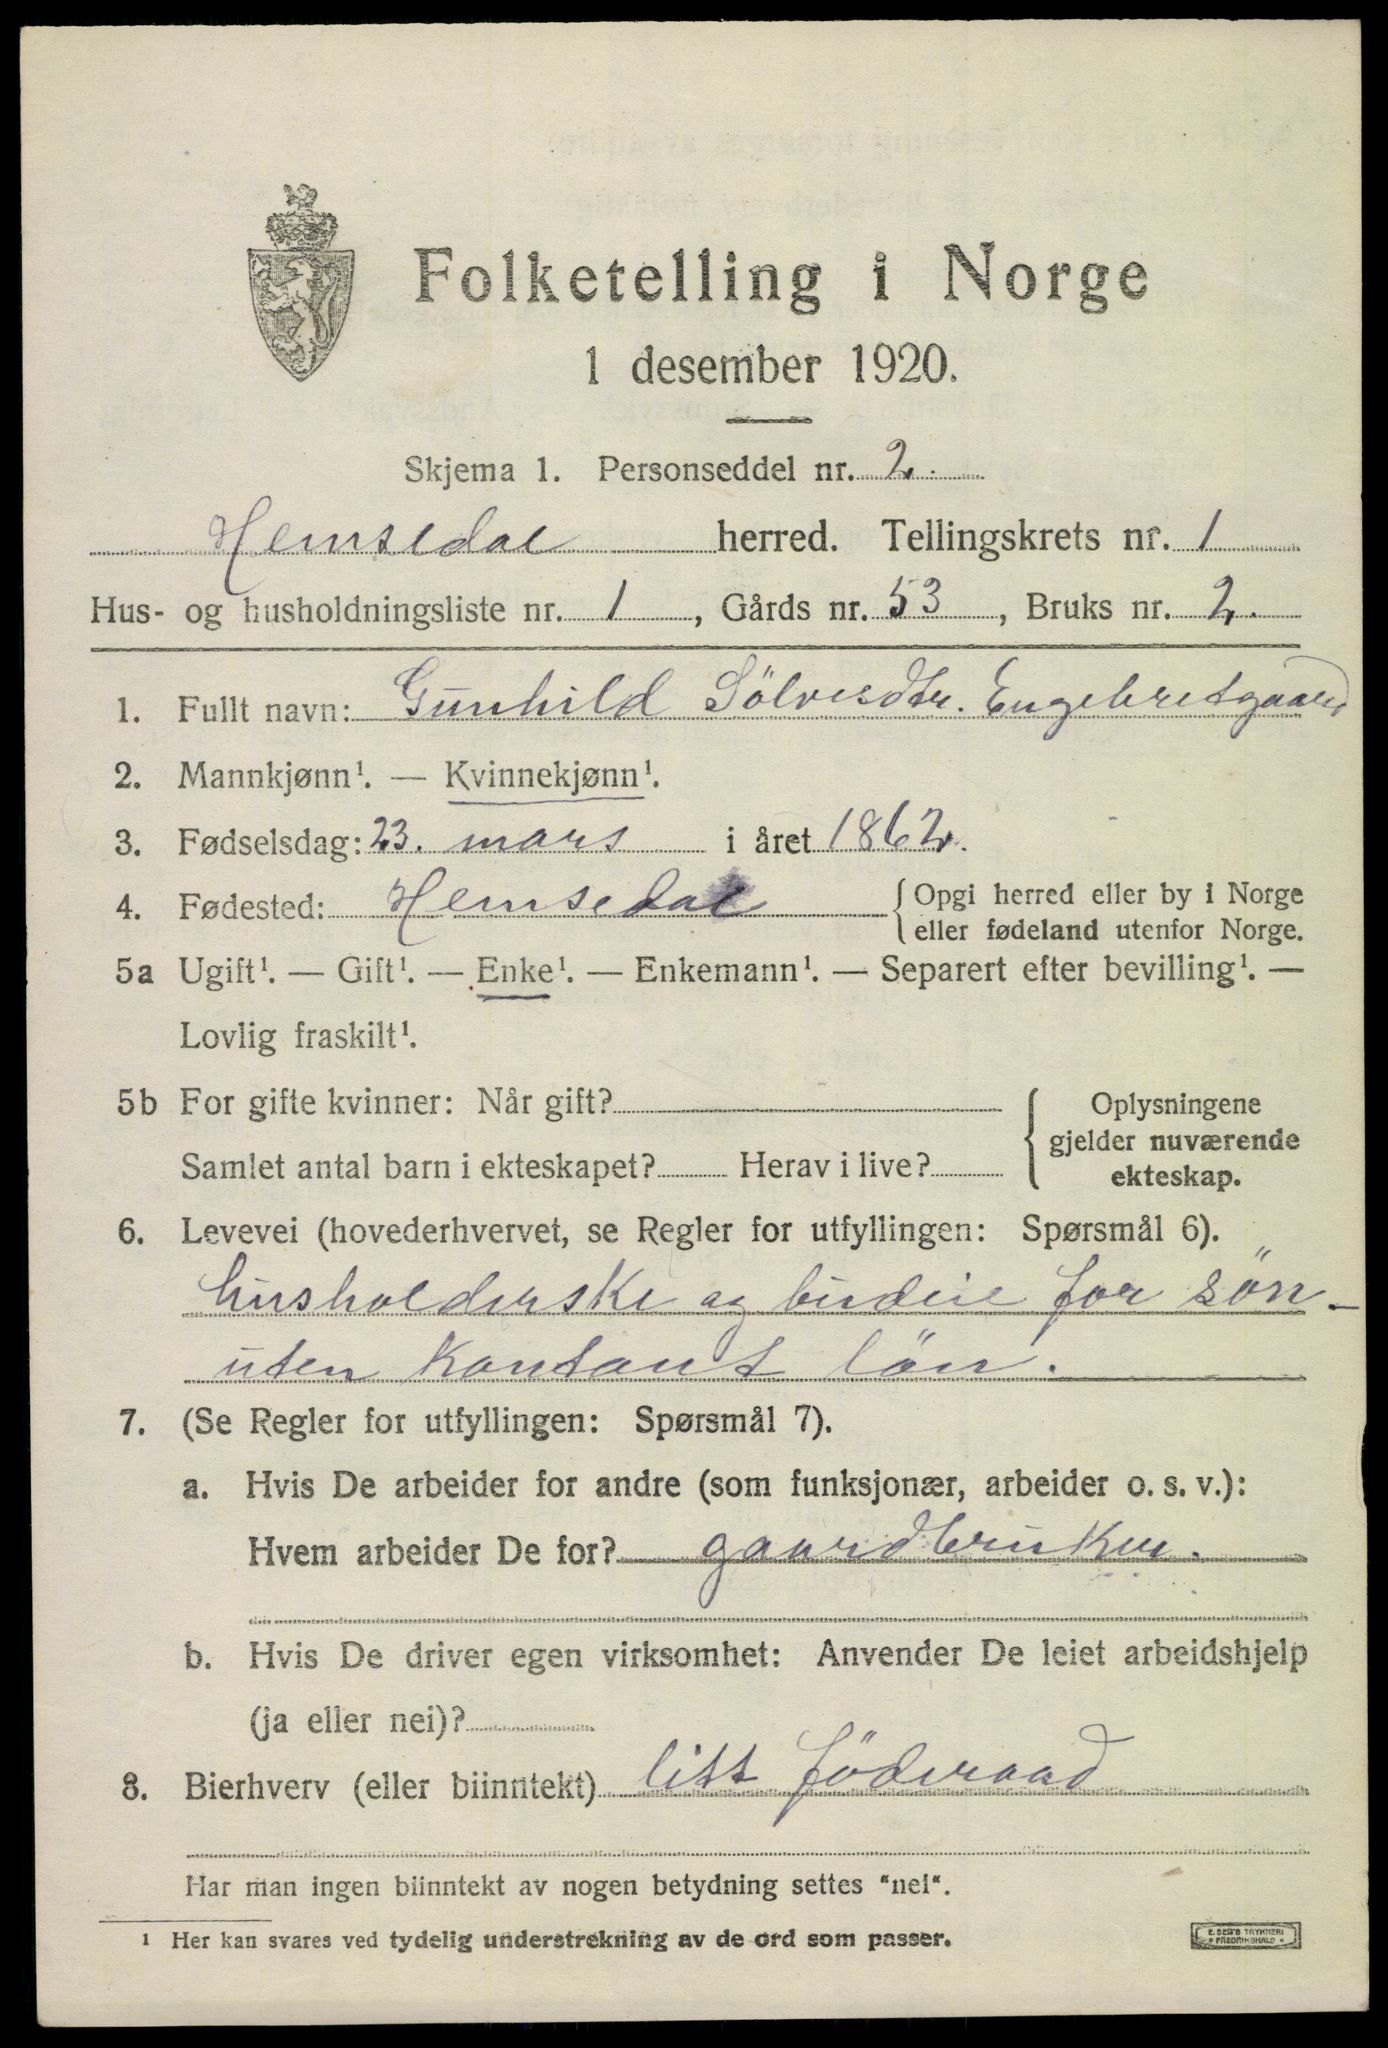 Folketelling i Norge
1 desember 1920.
Skjema 1. Personseddel nr. 2.
Hemsedal herred. Tellingskrets nr. 1
Hus- og husholdningsliste nr. 1, Gårds nr. 53, Bruks nr. 2.
1. Fullt navn: Gunhild Sölvesdtr. Engebretgaard
2. Mannkjønn¹. — Kvinnekjønn¹.
3. Fødselsdag: 23. mars i året 1862.
4. Fødested: Hemsedal { Opgi herred eller by i Norge
eller fødeland utenfor Norge.
5a Ugift¹. — Gift¹. — Enke¹. — Enkemann¹. — Separert efter bevilling¹. —
Lovlig fraskilt¹.
5b For gifte kvinner: Når gift? { Oplysningene
gjelder nuværende
Samlet antal barn i ekteskapet? Herav i live?
ekteskap.
6. Levevei (hovederhvervet, se Regler for utfyllingen: Spørsmål 6).
husholderske og budeie for sön -
uten kontant lön.
7. (Se Regler for utfyllingen: Spørsmål 7).
a. Hvis De arbeider for andre (som funksjonær, arbeider o. s. v.):
Hvem arbeider De for? gaardbruker.
b. Hvis De driver egen virksomhet: Anvender De leiet arbeidshjelp
(ja eller nei)?
8. Bierhverv (eller biinntekt) litt föderaad
Har man ingen biinntekt av nogen betydning settes "nei".
¹ Her kan svares ved tydelig understrekning av de ord som passer.
E. SEM'S TRYKKERI
FREDRIKSHALD